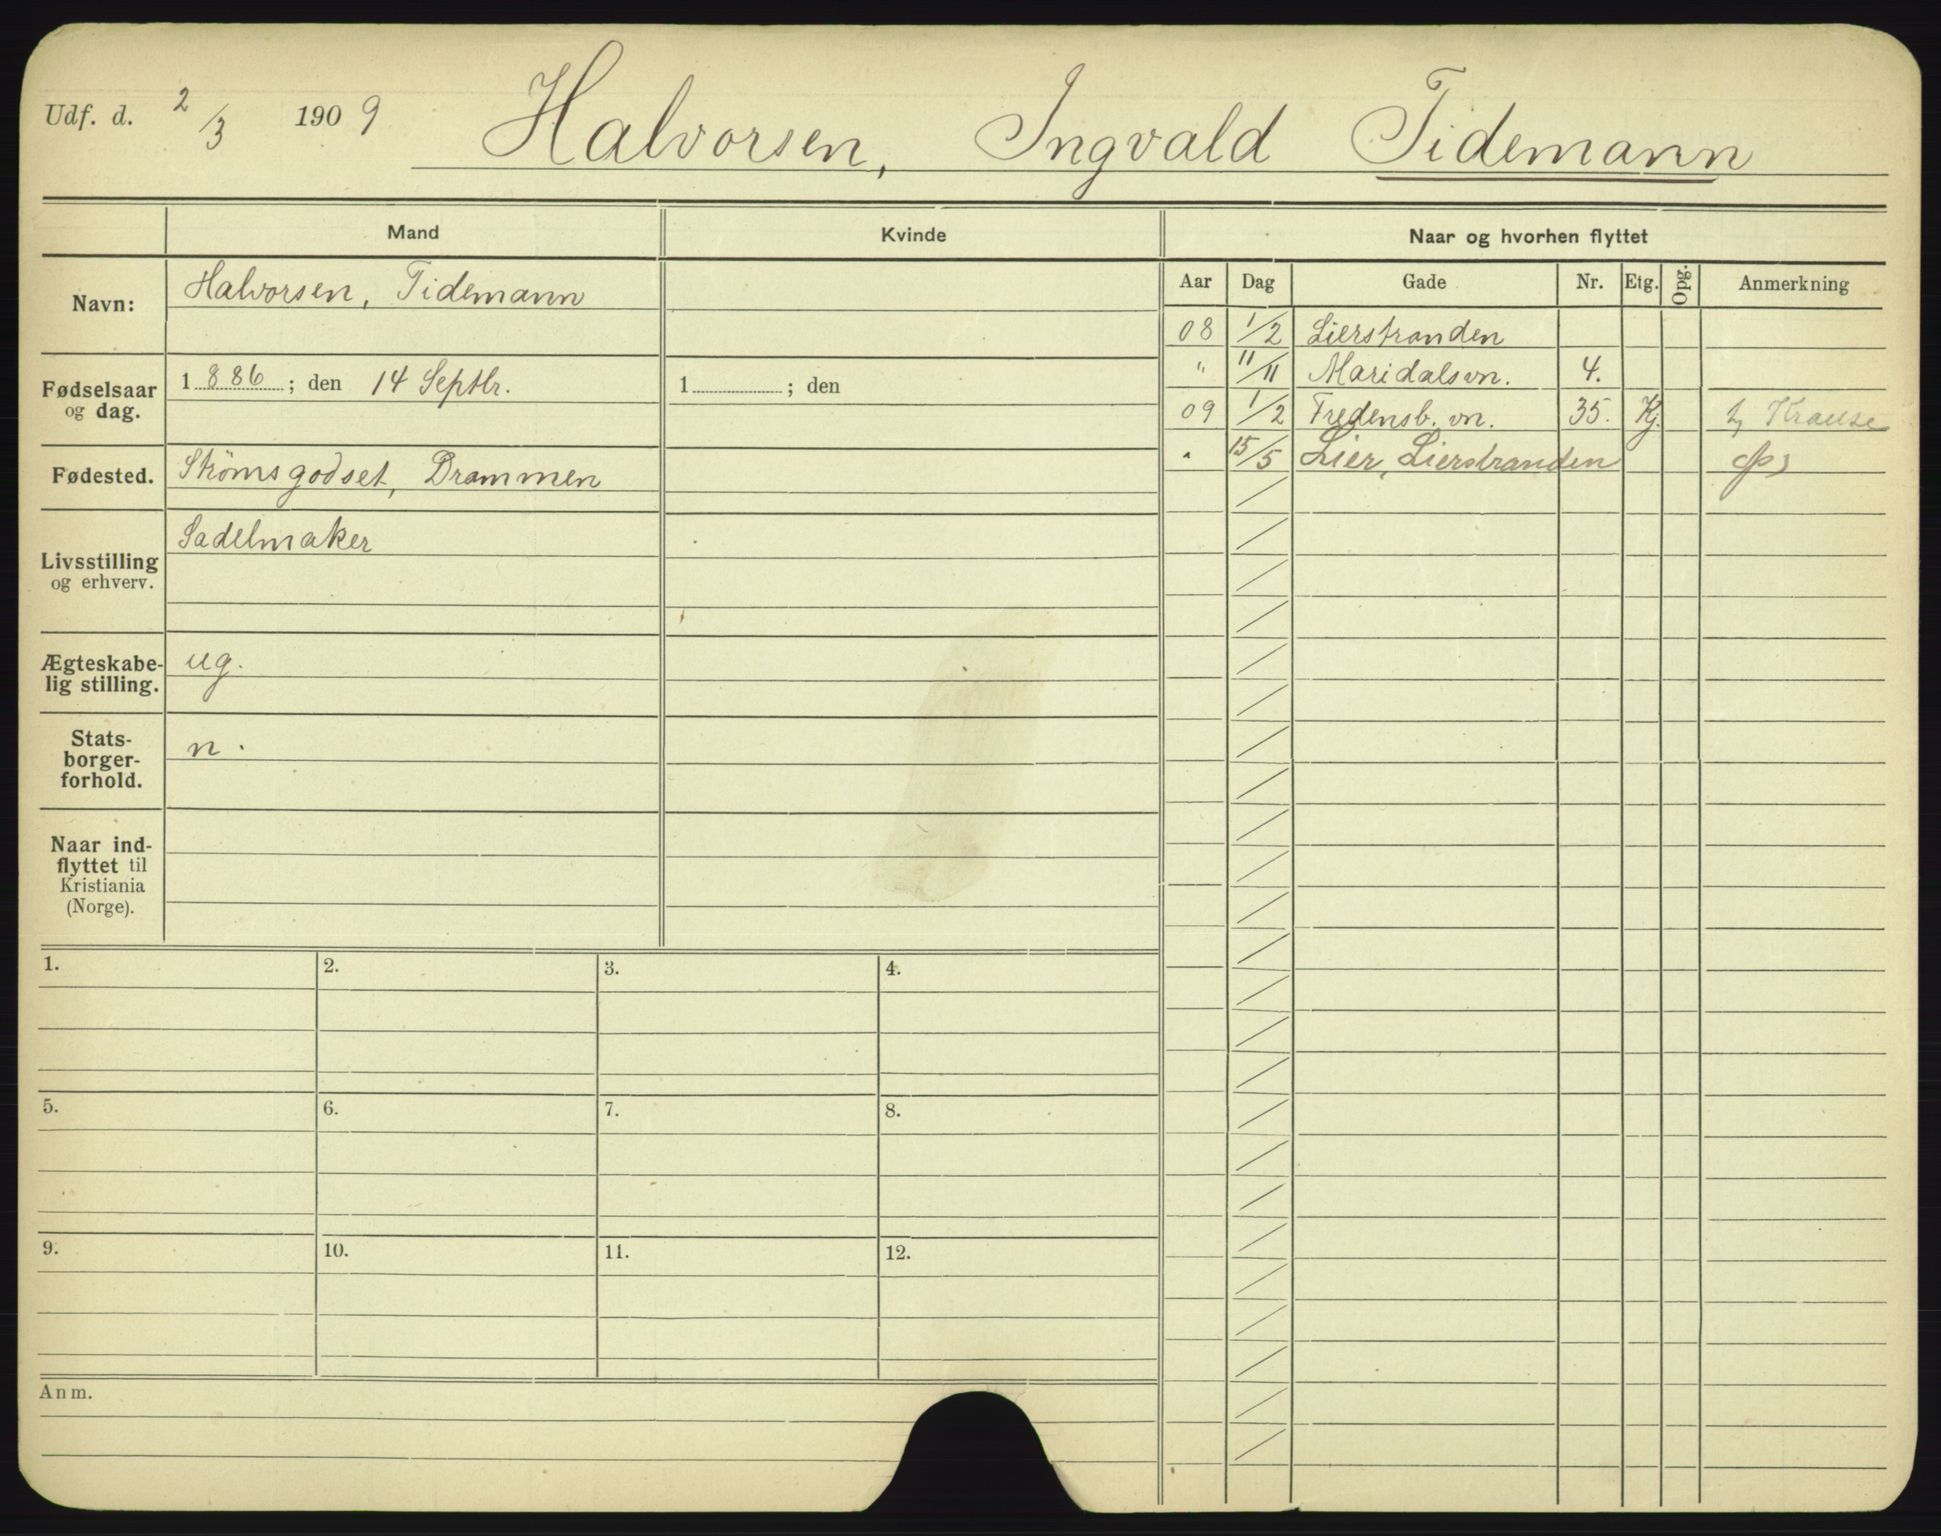 Udf. d. 2/3 1909 Halvorsen, Ingvald Tidemann
Mand Kvinde Naar og hvorhen flyttet
Aar Dag Gade Nr. Etg. Opg. Anmerkning
Navn: Halvorsen, Tidemann
08 1/2 Lierstranden
" 11/11 Maridalsvn. 4.
Fødselsaar og dag. 1886; den 14 Septbr. 1 ; den
09 1/2 Fredensb. vn. 35. Kj. Krause
" 15/5 Lier, Lierstranden
Fødested. Strömsgodset, Drammen
Livsstilling og erhverv. Sadelmaker
Ægteskabe-
lig stilling. ug.
Stats-
borger-
forhold. n.
Naar ind-
flyttet til
Kristiania
(Norge).
1. 2. 3. 4.
5. 6. 7. 8.
9. 10. 11. 12.
Anm.